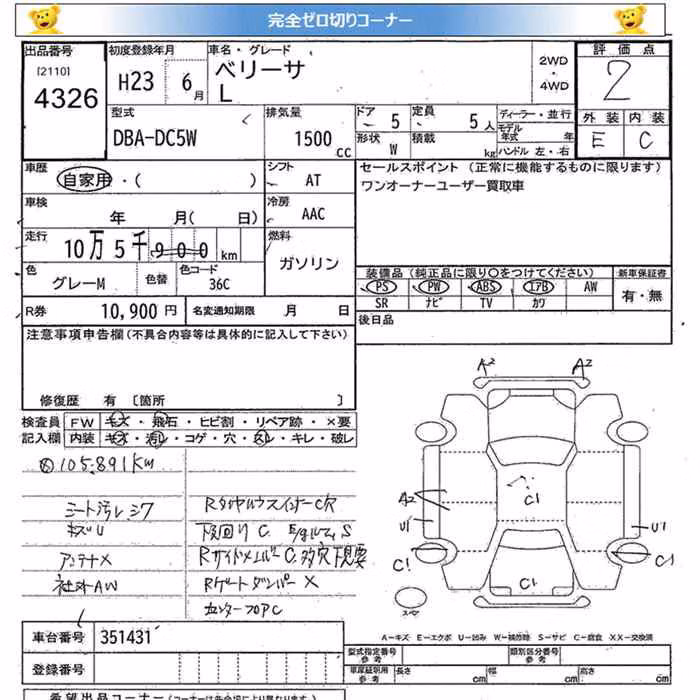 完全ゼロ切りコーナー
出品番号 初度登録年月 車名・グレード 評価点
[2110] 4326 H23 6月 ベリーサ L 2WD ・ 4WD 2
型式 排気量 ドア 5 定員 5人 ディーラー・並行 外装 内装
DBA-DC5W 1500 CC 形状 W 積載 kg モデル年式 年 E C
ハンドル 左・右
車歴 自家用・( ) シフト AT セールスポイント (正常に機能するものに限ります)
ワンオーナーユーザー買取車
車検 年 月( 日) 冷房 AAC
走行 10万5千900km 燃料 ガソリン
色 グレーM 色替 色コード 36C 装備品(純正品に限り○をつけてください) 新車保証書
PS PW ABS エアB AW 有・無
SR ナビ TV カワ
R券 10,900円 名変通知期限 月 日 後日品
注意事項申告欄(不具合内容等は具体的に記入して下さい)
修復歴 有 [箇所 ]
検査員 FW キズ・飛石・ヒビ割・リペア跡・×要
記入欄 内装 キズ・汚レ・コゲ・穴・スレ・キレ・破レ
105,891km
シート汚レシワ
キズU
アンテナX
社外AW
下回りC
RゲートダンパーX
A2 A2
C1
A2
U1 U1
C1 C1
C1
スペア
車台番号 351431
A-キズ E-エクボ U-凹み W-補修跡 S-サビ C-腐食 XX-交換済
型式指定番号 参考 類別区分番号 参考
登録番号 車庫証明用 参考 長さ cm 幅 cm 高さ cm
希望出品コーナー